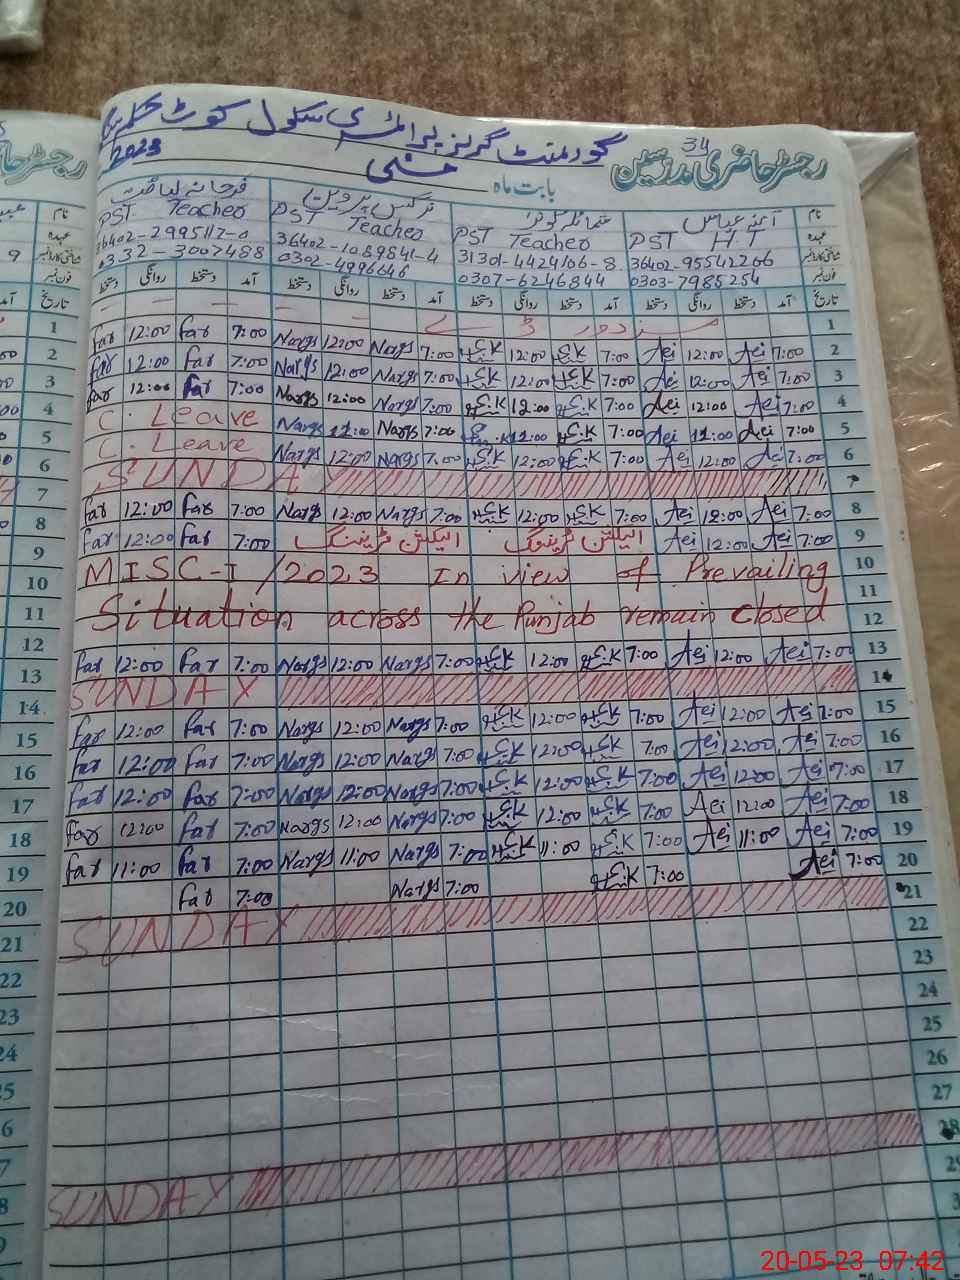 گورنمنٹ گرلز پرائمری سکول کوٹ
34
رجسٹر حاضری مدرسین
بابت ماہ مئی
2023
نام
عہدہ PST H.T PST Teacher PST Teacher PST Teacher
شناختی کارڈ نمبر 36402-95542266 31301-4424106-8 36402-1089841-4 36402-2995117-0
فون نمبر 0303-7985254 0307-6246844 0302-4996646 0332-3007488
تاریخ آمد دستخط روانگی دستخط آمد دستخط روانگی دستخط آمد دستخط روانگی دستخط آمد دستخط روانگی دستخط
1
far 12:00 far 7:00 Nargs 12:00 Nargs 7:00 E.K 12:00 E.K 7:00 Aei 12:00 Aei 7:00 2
far 12:00 far 7:00 Nargs 12:00 Nargs 7:00 E.K 12:00 E.K 7:00 Aei 12:00 Aei 7:00 3
far 12:00 far 7:00 Nargs 12:00 Nargs 7:00 E.K 12:00 E.K 7:00 Aei 12:00 Aei 7:00 4
C. Leave Nargs 11:00 Nargs 7:00 11:00 E.K 7:00 Aei 11:00 Aei 7:00 5
C. Leave Nargs 12:00 Nargs 7:00 E.K 12:00 E.K 7:00 Aei 12:00 Aei 7:00 6
SUNDAY 7
far 12:00 far 7:00 Nargs 12:00 Nargs 7:00 E.K 12:00 E.K 7:00 Aei 12:00 Aei 7:00 8
far 12:00 far 7:00 الیکشن ٹریننگ الیکشن ٹریننگ Aei 12:00 Aei 7:00 9
MISC-I/2023 In view of Prevailing 10
11
Situation across the Punjab remain closed 12
far 12:00 far 7:00 Nargs 12:00 Nargs 7:00 E.K 12:00 E.K 7:00 Aei 12:00 Aei 7:00 13
SUNDAY 14
far 12:00 far 7:00 Nargs 12:00 Nargs 7:00 E.K 12:00 E.K 7:00 Aei 12:00 Aei 7:00 15
far 12:00 far 7:00 Nargs 12:00 Nargs 7:00 E.K 12:00 E.K 7:00 Aei 12:00 Aei 7:00 16
far 12:00 far 7:00 Nargs 12:00 Nargs 7:00 E.K 12:00 E.K 7:00 Aei 12:00 Aei 7:00 17
far 12:00 far 7:00 Nargs 12:00 Nargs 7:00 E.K 12:00 E.K 7:00 Aei 12:00 Aei 7:00 18
far 11:00 far 7:00 Nargs 11:00 Nargs 7:00 E.K 11:00 E.K 7:00 Aei 11:00 Aei 7:00 19
far 7:00 Nargs 7:00 E.K 7:00 Aei 7:00 20
SUNDAY 21
22
23
24
25
26
27
SUNDAY 28
20-05-23 07:42